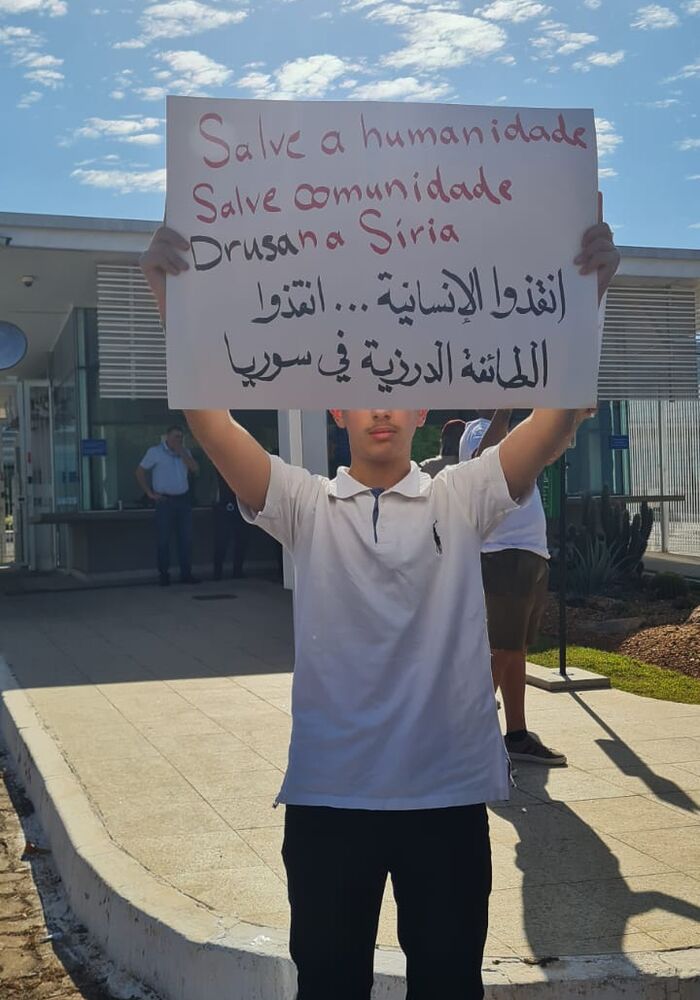 Salve a humanidade
Salve comunidade
Drusa na Síria
انقذوا الإنسانية ... انقذوا
الطائفة الدرزية في سوريا